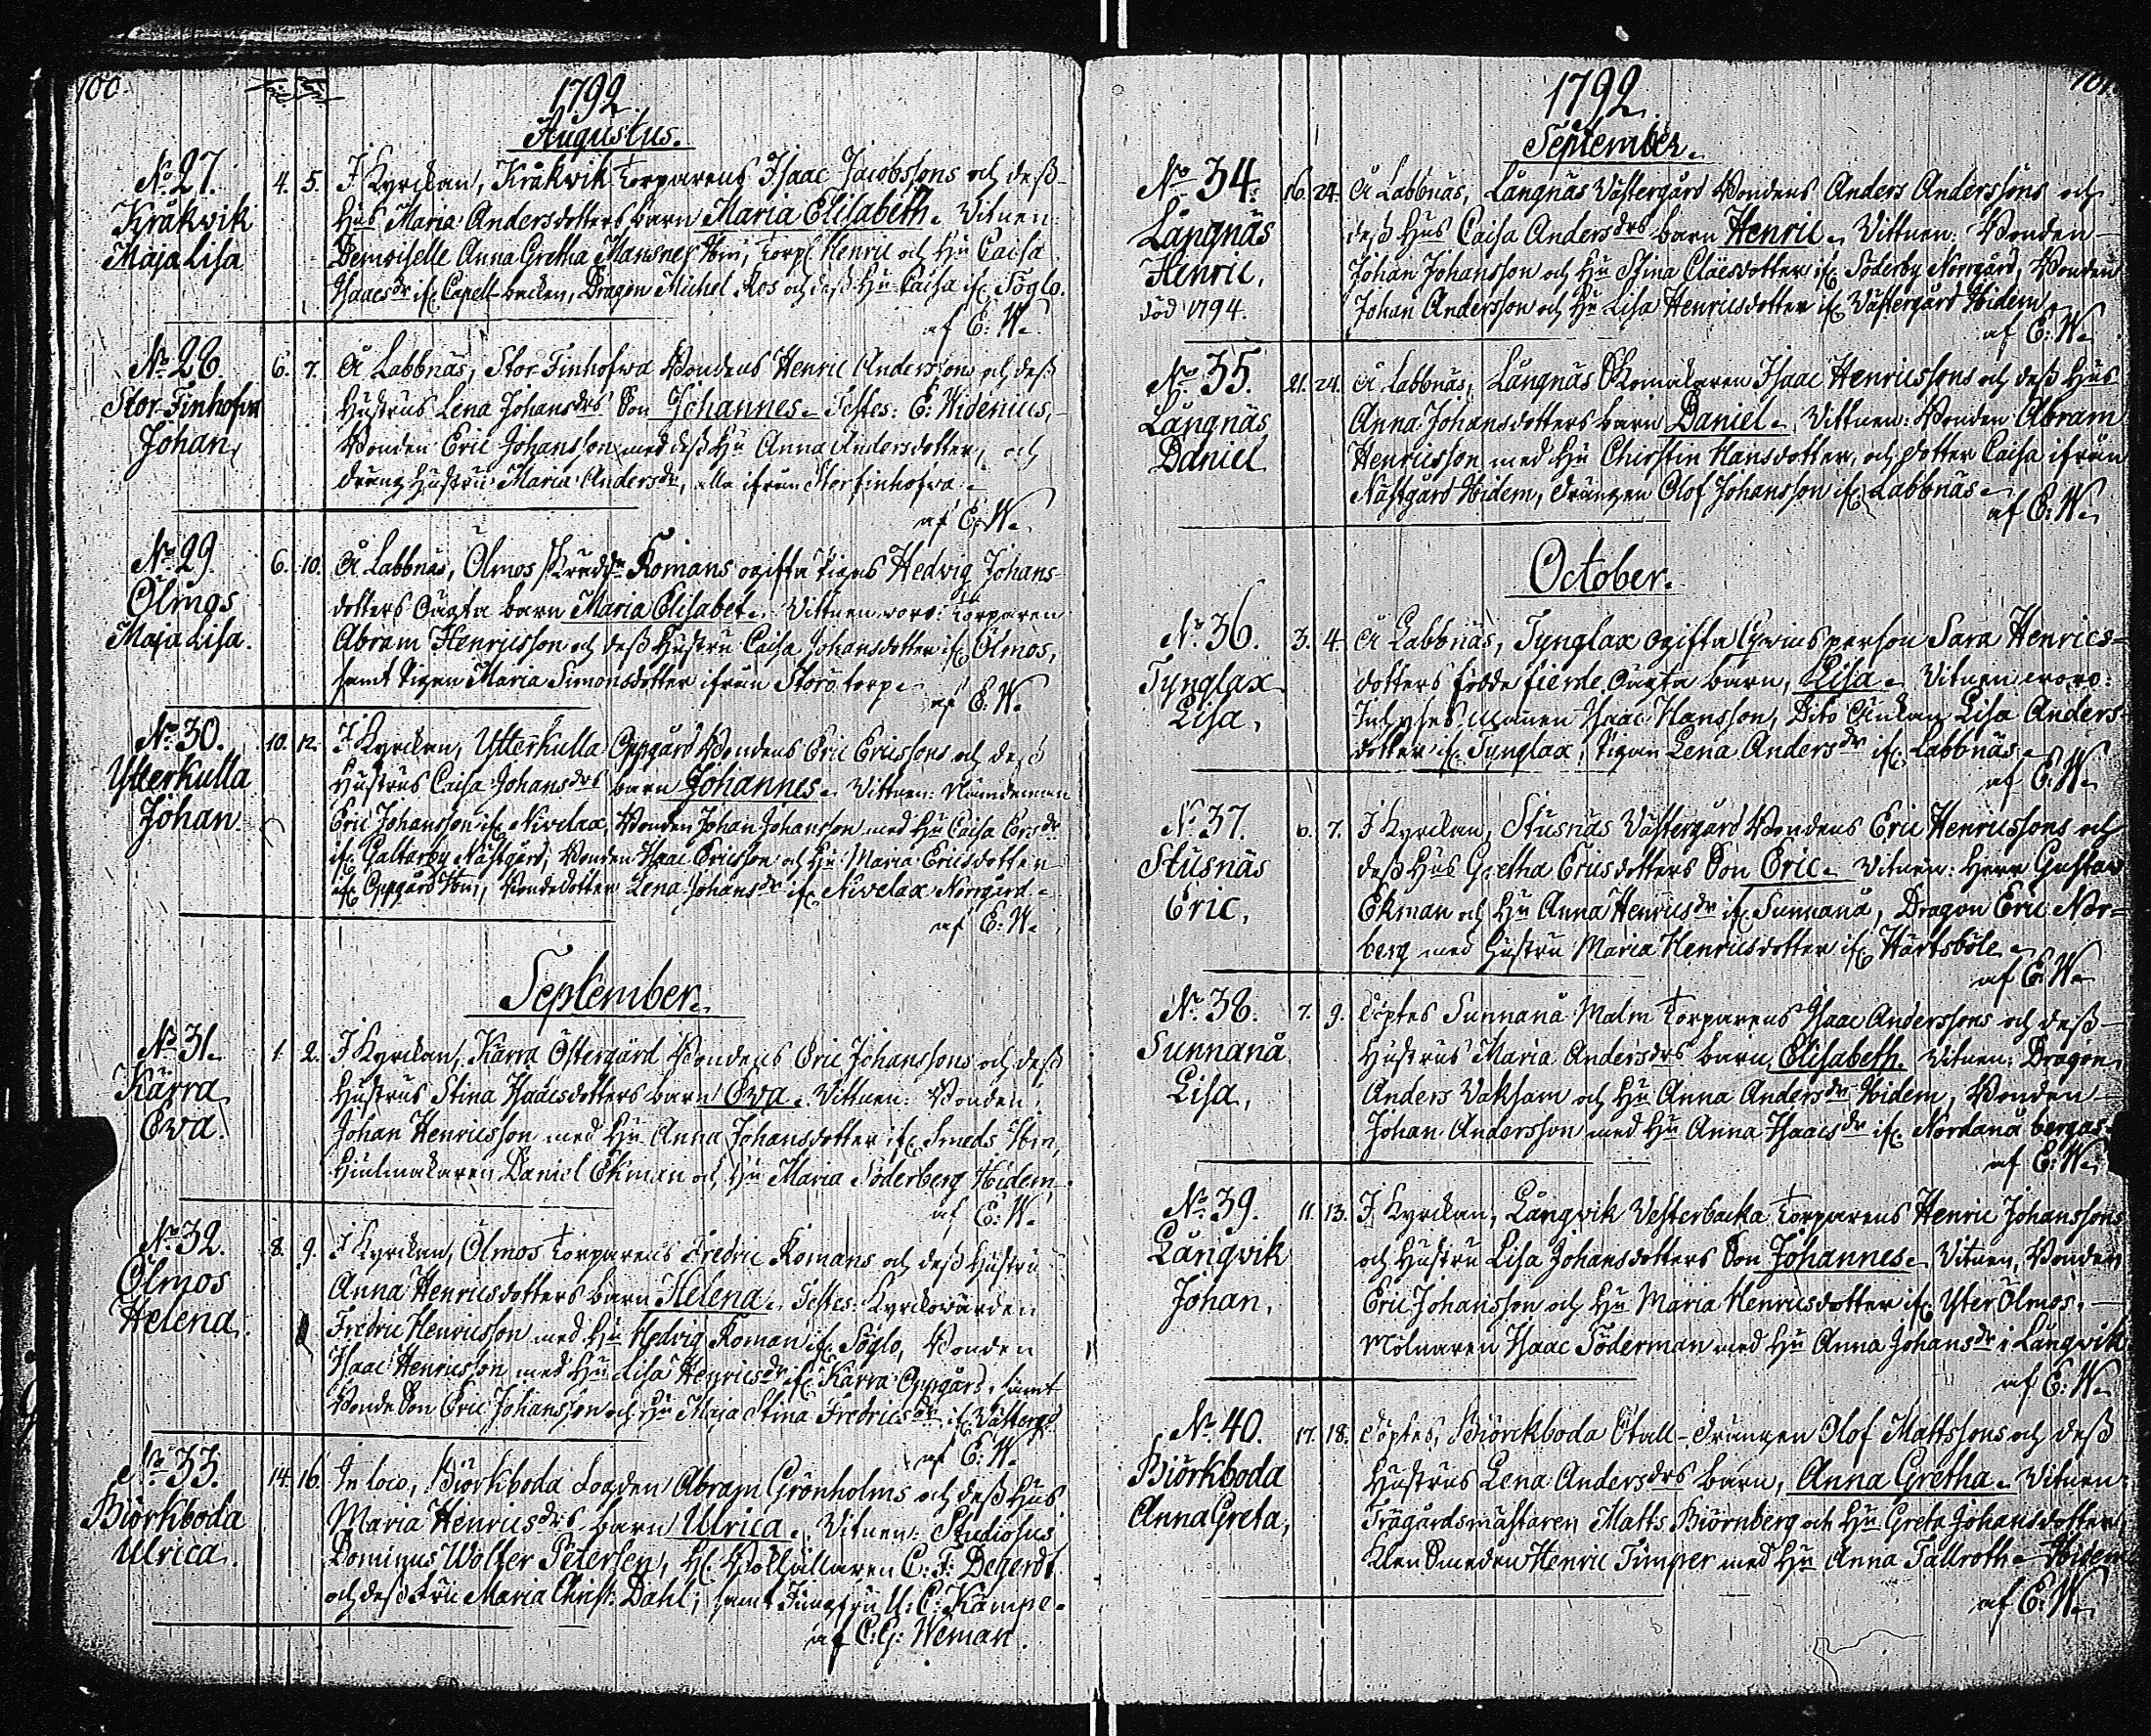 100.
1792.
Augustus.
No 27.
Kråkvik
Maja Lisa
4. 5. I Kyrckan, Kråkvik Torparens Isaac Jacobssons och dess
Hus Maria Andersdotters barn Maria Elisabeth. Vitnen:
Demoiselle Anna Gretha Mansner Ibm, Torp. Henric och Hu Caisa
Isaacsdr if. Capell-backen, Dragon Michel Ros och dess Hu Caisa if. Söglo.
af E: W.
No 28.
Stor Finhofva
Johan,
6. 7. Å Labbnäs, Stor Finhofwa Bondens Henric Anderssons och dess
Hustrus Lena Johansdrs Son Johannes. Testes: E: Widenius,
Bonden Eric Johansson med dess Hu Anna Andersdotter, och
dräng Hustru Maria Andersdr, alla ifrån Storfinhofwa.
af E: W.
No 29.
Ölmos
Maja Lisa.
6. 10. Å Labbnäs, Ölmos Romans ogifta pigas Hedvig Johans-
dotters oägta barn Maria Elisabet. Vittnen voro: Torparen
Abram Henricsson och dess Hustru Caisa Johansdotter if. Ölmos,
samt Pigan Maria Simonsdotter ifrån Storö torp.
af E: W.
No 30.
Ytterkulla
Johan.
10. 12. I Kyrckan, Ytterkulla Oppgård Bondens Eric Ericssons och dess
Hustrus Caisa Johansdrs barn Johannes. Vittnen: Nämndeman
Eric Johansson if. Nivelax, Bonden Johan Johansson med Hu Caisa Ersdr
if. Galtarby Nästgård, Bonden Isaac Ericsson och Hu Maria Ericsdotter
if. Oppgård Ibm, Bondedotter Lena Johansdr if. Nivelax Norrgård.
af E: W.
September.
No 31.
Kärra
Eva.
1. 2. I Kyrckan, Kärra Östergård Bondens Eric Johanssons och dess
Hustrus Stina Isaacsdotters barn Eva. Vittnen: Bonden
Johan Henricsson med Hu Anna Johansdotter if. Smeds Ibm,
Hiulmakaren Daniel Ekman och Hu Maria Söderberg Ibidem.
af E: W.
No 32.
Ölmos
Helena.
8. 9. I Kyrckan, Ölmos Torparens Fredric Romans och dess Hustru
Anna Henricsdotters barn Helena. Testes: Kyrckowärden
Fredric Henricsson med Hu Hedvig Roman if. Söglo, Bonden
Isaac Henricsson med Hu Lisa Henricsdr if. Kärra Oppgård, samt
Bonde Son Eric Johansson och Hu Maja Stina Fredricsdr if. Västergd
af E: W.
No 33.
Biörkboda
Ulrica.
14. 16. In loco, Biörkboda Logden Abram Grönholms och dess Hus
Maria Henricsdrs barn Ulrica. Vitnen: Studiosus
Dominus Wolter Petersen, H. C: F: Degerdt
och dess Fru Maria Christ: Dahl; samt Jungfru U: C: Kämpe.
af C: G: Weman.
101.
1792.
September.
No 34.
Långnäs
Henric.
död 1794.
16. 24. Å Labbnäs, Långnäs Västergård Bondens Anders Anderssons och
dess Hus Caisa Andersdrs barn Henric. Vittnen: Bonden
Johan Johansson och Hu Stina Claësdotter if. Söderby Norrgård, Bonden
Johan Andersson och Hu Lisa Henricsdotter if. Västergård Ibidem.
af E: W.
No 35.
Långnäs
Daniel
21. 24. Å Labbnäs, Långnäs Skomakaren Isaac Henricssons och dess Hus
Anna Johansdotters barn Daniel. Vittnen: Bonden Abram
Henricsson med Hu Chirstin Hansdotter, och dotter Caisa ifrån
Nästgård Ibidem, drängen Olof Johansson if. Labbnäs.
af E: W.
October.
No 36.
Tynglax
Lisa,
3. 4. Å Labbnäs, Tynglax ogifta Qvinsperson Sara Henrics-
dotters födde fierde oägta barn, Lisa. Vitnen woro:
Inhyses mannen Isaac Hansson, Dito Änkan Lisa Anders
dotter if. Tynglax, Pigan Lena Andersdr if. Labbnäs.
af E: W.
No 37.
Stusnäs
Eric,
6. 7. I Kyrckan, Stusnäs Västergård Bondens Eric Henricssons och
dess Hus Gretha Ericsdotters Son Eric. Vitnen: Herr Gustav
Ekman och Hu Anna Henricsdr if. Sunnanå, Dragon Eric Nor-
berg med Hustru Maria Henricsdotter if. Härtsböle.
af E: W.
No 38.
Sunnanå
Lisa,
7. 9. Döptes Sunnanå Malm Torparens Isaac Anderssons och dess
Hustrus Maria Andersdrs barn, Elisabeth. Vitnen: Dragon
Anders Vaksam och Hu Anna Andersdr Ibidem, Bonden
Johan Andersson med Hu Anna Isaacsdr if. Nordanå bergas.
af E: W.
No 39.
Långvik
Johan,
11. 13. I Kyrckan, Långvik Vesterbacka Torparens Henric Johanssons
och Hustru Lisa Johansdotters Son Johannes. Vitnen, Bonden
Eric Johansson och Hu Maria Henricsdotter if. Yter Ölmos,
Mölnaren Isaac Söderman med Hu Anna Johansdr i Långvik
af E: W.
No 40.
Biörkboda
Anna Greta,
17. 18. Döptes, Biörckboda Stall-drängen Olof Mattssons och dess
Hustrus Lena Andersdrs barn, Anna Gretha. Vitnen:
Trägårdsmästaren Matts Biörnberg och Hu Greta Johansdotter,
Klen Smeden Henric Timper med Hu Anna Tallroth. Ibidem
af E: W.